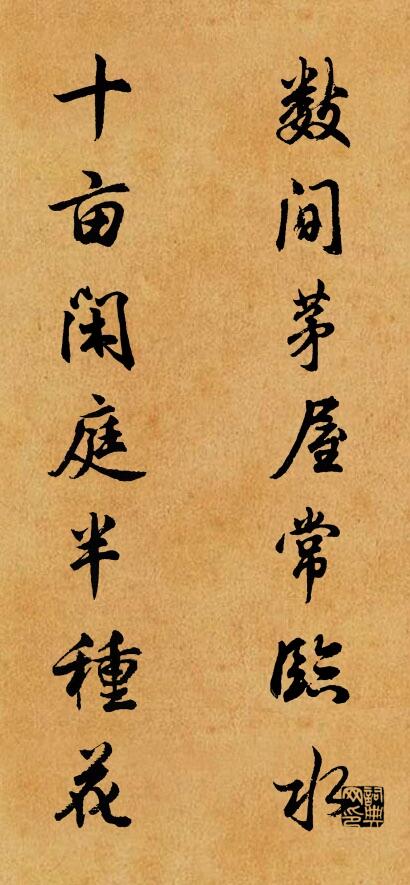 数间茅屋常临水
十亩闲庭半種花
詞典网印